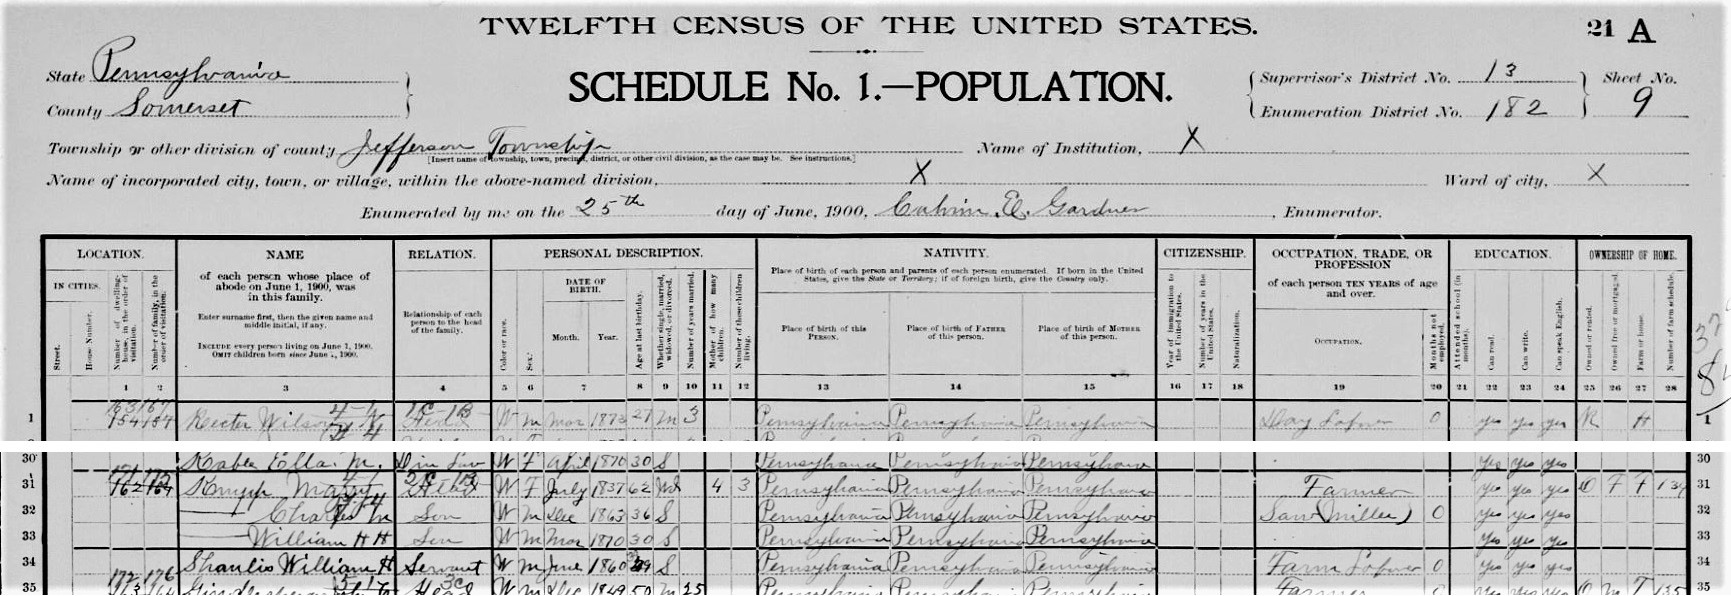 TWELFTH CENSUS OF THE UNITED STATES.
21 A
State Pennsylvania
County Somerset
SCHEDULE No. 1.—POPULATION.
Supervisor's District No. 13
Enumeration District No. 182
Sheet No.
9
Township or other division of county Jefferson Township
[Insert name of township, town, precinct, district, or other civil division, as the case may be. See instructions.]
Name of Institution, X
Name of incorporated city, town, or village, within the above-named division, X
Ward of city, X
Enumerated by me on the 25th day of June, 1900, Calvin E. Gardner, Enumerator.
LOCATION.
IN CITIES.
Street.
House Number.
Number of dwelling-house, in the order of visitation.
Number of family, in the order of visitation.
NAME
of each person whose place of abode on June 1, 1900, was in this family.
Enter surname first, then the given name and middle initial, if any.
INCLUDE every person living on June 1, 1900.
OMIT children born since June 1, 1900.
RELATION.
Relationship of each person to the head of the family.
PERSONAL DESCRIPTION.
Color or race.
Sex.
DATE OF BIRTH.
Month. Year.
Age at last birthday.
Whether single, married, widowed, or divorced.
Number of years married.
Mother of how many children.
Number of these children living.
NATIVITY.
Place of birth of each person and parents of each person enumerated. If born in the United States, give the State or Territory; if of foreign birth, give the Country only.
Place of birth of this PERSON.
Place of birth of FATHER of this person.
Place of birth of MOTHER of this person.
CITIZENSHIP.
Year of immigration to the United States.
Number of years in the United States.
Naturalization.
OCCUPATION, TRADE, OR PROFESSION
of each person TEN YEARS of age and over.
OCCUPATION.
Months not employed.
EDUCATION.
Attended school (in months).
Can read.
Can write.
Can speak English.
OWNERSHIP OF HOME.
Owned or rented.
Owned free or mortgaged.
Farm or home.
Number of farm schedule.
1 2 3 4 5 6 7 8 9 10 11 12 13 14 15 16 17 18 19 20 21 22 23 24 25 26 27 28
1 Recter Wilson Head W M Mar 1873 27 M 3 Pennsylvania Pennsylvania Pennsylvania Day Labner 0 yes yes yes R H 1
30 Kable Ella M. W F April 1870 30 S Pennsylvania Pennsylvania Pennsylvania yes yes yes 30
31 Mary W F July 1837 62 Wd 4 3 Pennsylvania Pennsylvania Pennsylvania Farmer yes yes yes O F F 134 31
32 Charles M Son W M Dec 1863 36 S Pennsylvania Pennsylvania Pennsylvania Saw (Miller) 0 yes yes yes 32
33 William H H Son W M Mar 1870 30 S Pennsylvania Pennsylvania Pennsylvania yes yes yes 33
34 Shaulis William H Servant W M June 1860 39 S Pennsylvania Pennsylvania Pennsylvania Farm Labner 0 yes yes yes 34
35 Head W M Dec 1849 50 M 25 Farmer O M F 135 35